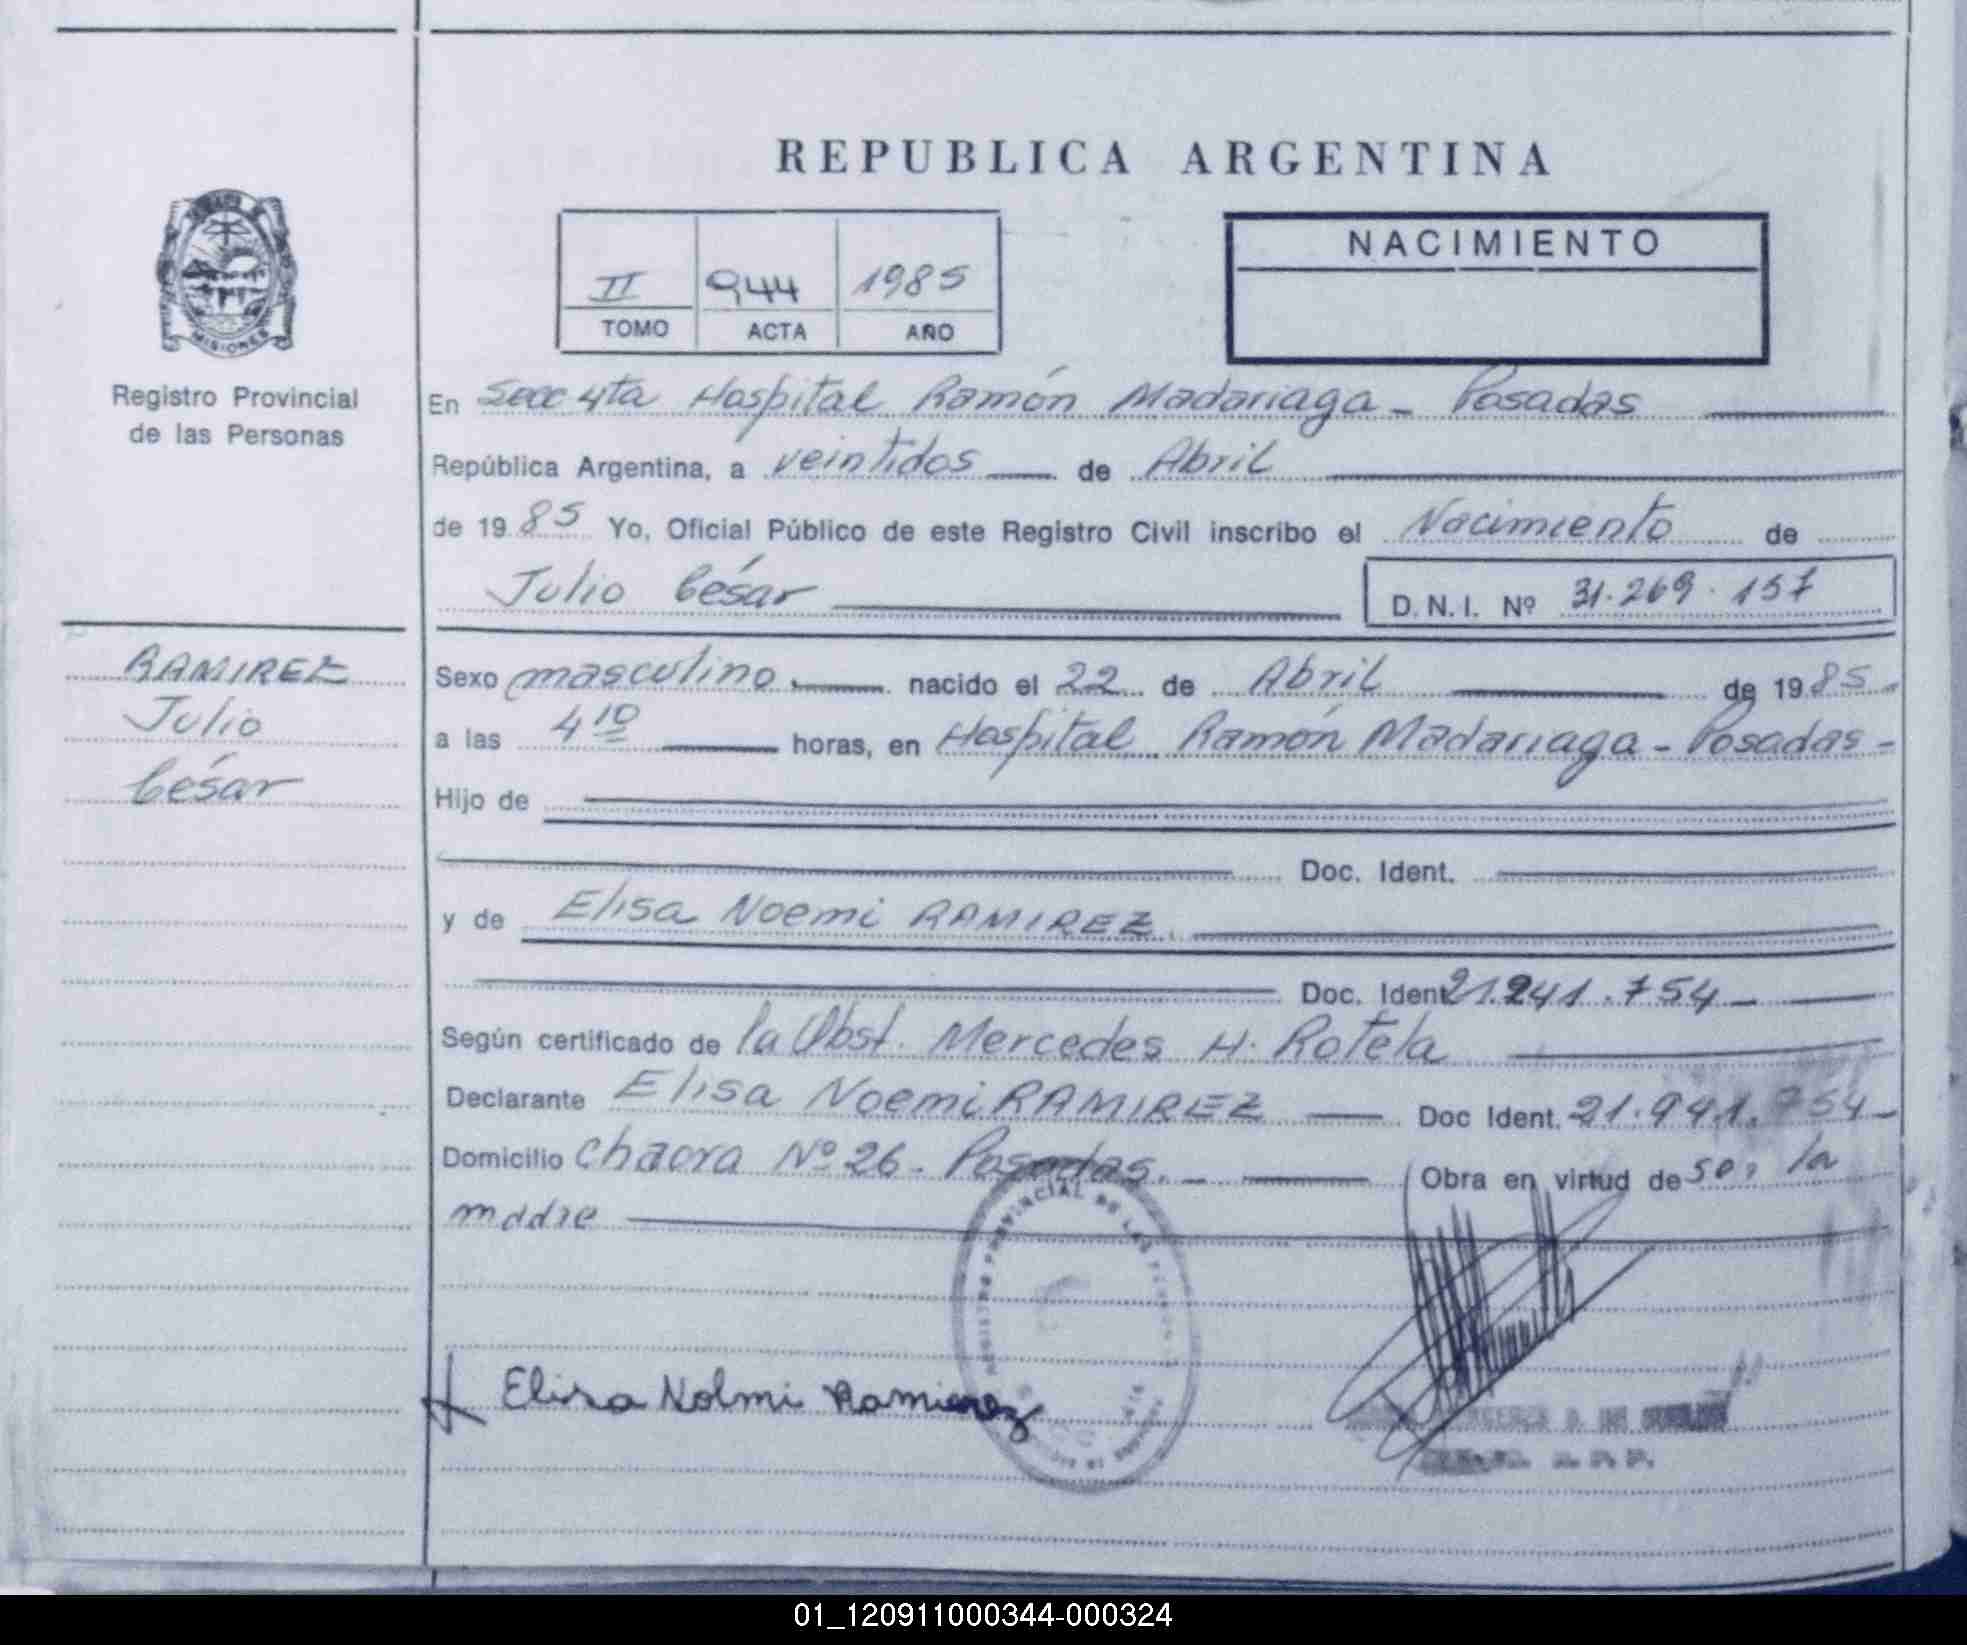 REPUBLICA ARGENTINA
II 944 1985
TOMO ACTA AÑO
NACIMIENTO
MISIONES
Registro Provincial
de las Personas
En Secc 4ta Hospital Ramón Madariaga - Posadas
República Argentina, a veintidos de Abril
de 19 85 Yo, Oficial Público de este Registro Civil inscribo el Nacimiento de
Julio César D.N.I. Nº 31.269.157
RAMIREZ
Julio
César
Sexo masculino nacido el 22 de Abril de 19 85
a las 4 10 horas, en Hospital Ramón Madariaga - Posadas -
Hijo de
Doc. Ident.
y de Elisa Noemi RAMIREZ
Doc. Ident 21.941.754
Según certificado de la Obst. Mercedes H. Rotela
Declarante Elisa Noemi RAMIREZ Doc Ident. 21.941.754 -
Domicilio Chacra Nº 26 - Posadas. Obra en virtud de ser la
madre
REGISTRO PROVINCIAL DE LAS PERSONAS
Elisa Nolmi Ramierez
01_120911000344-000324